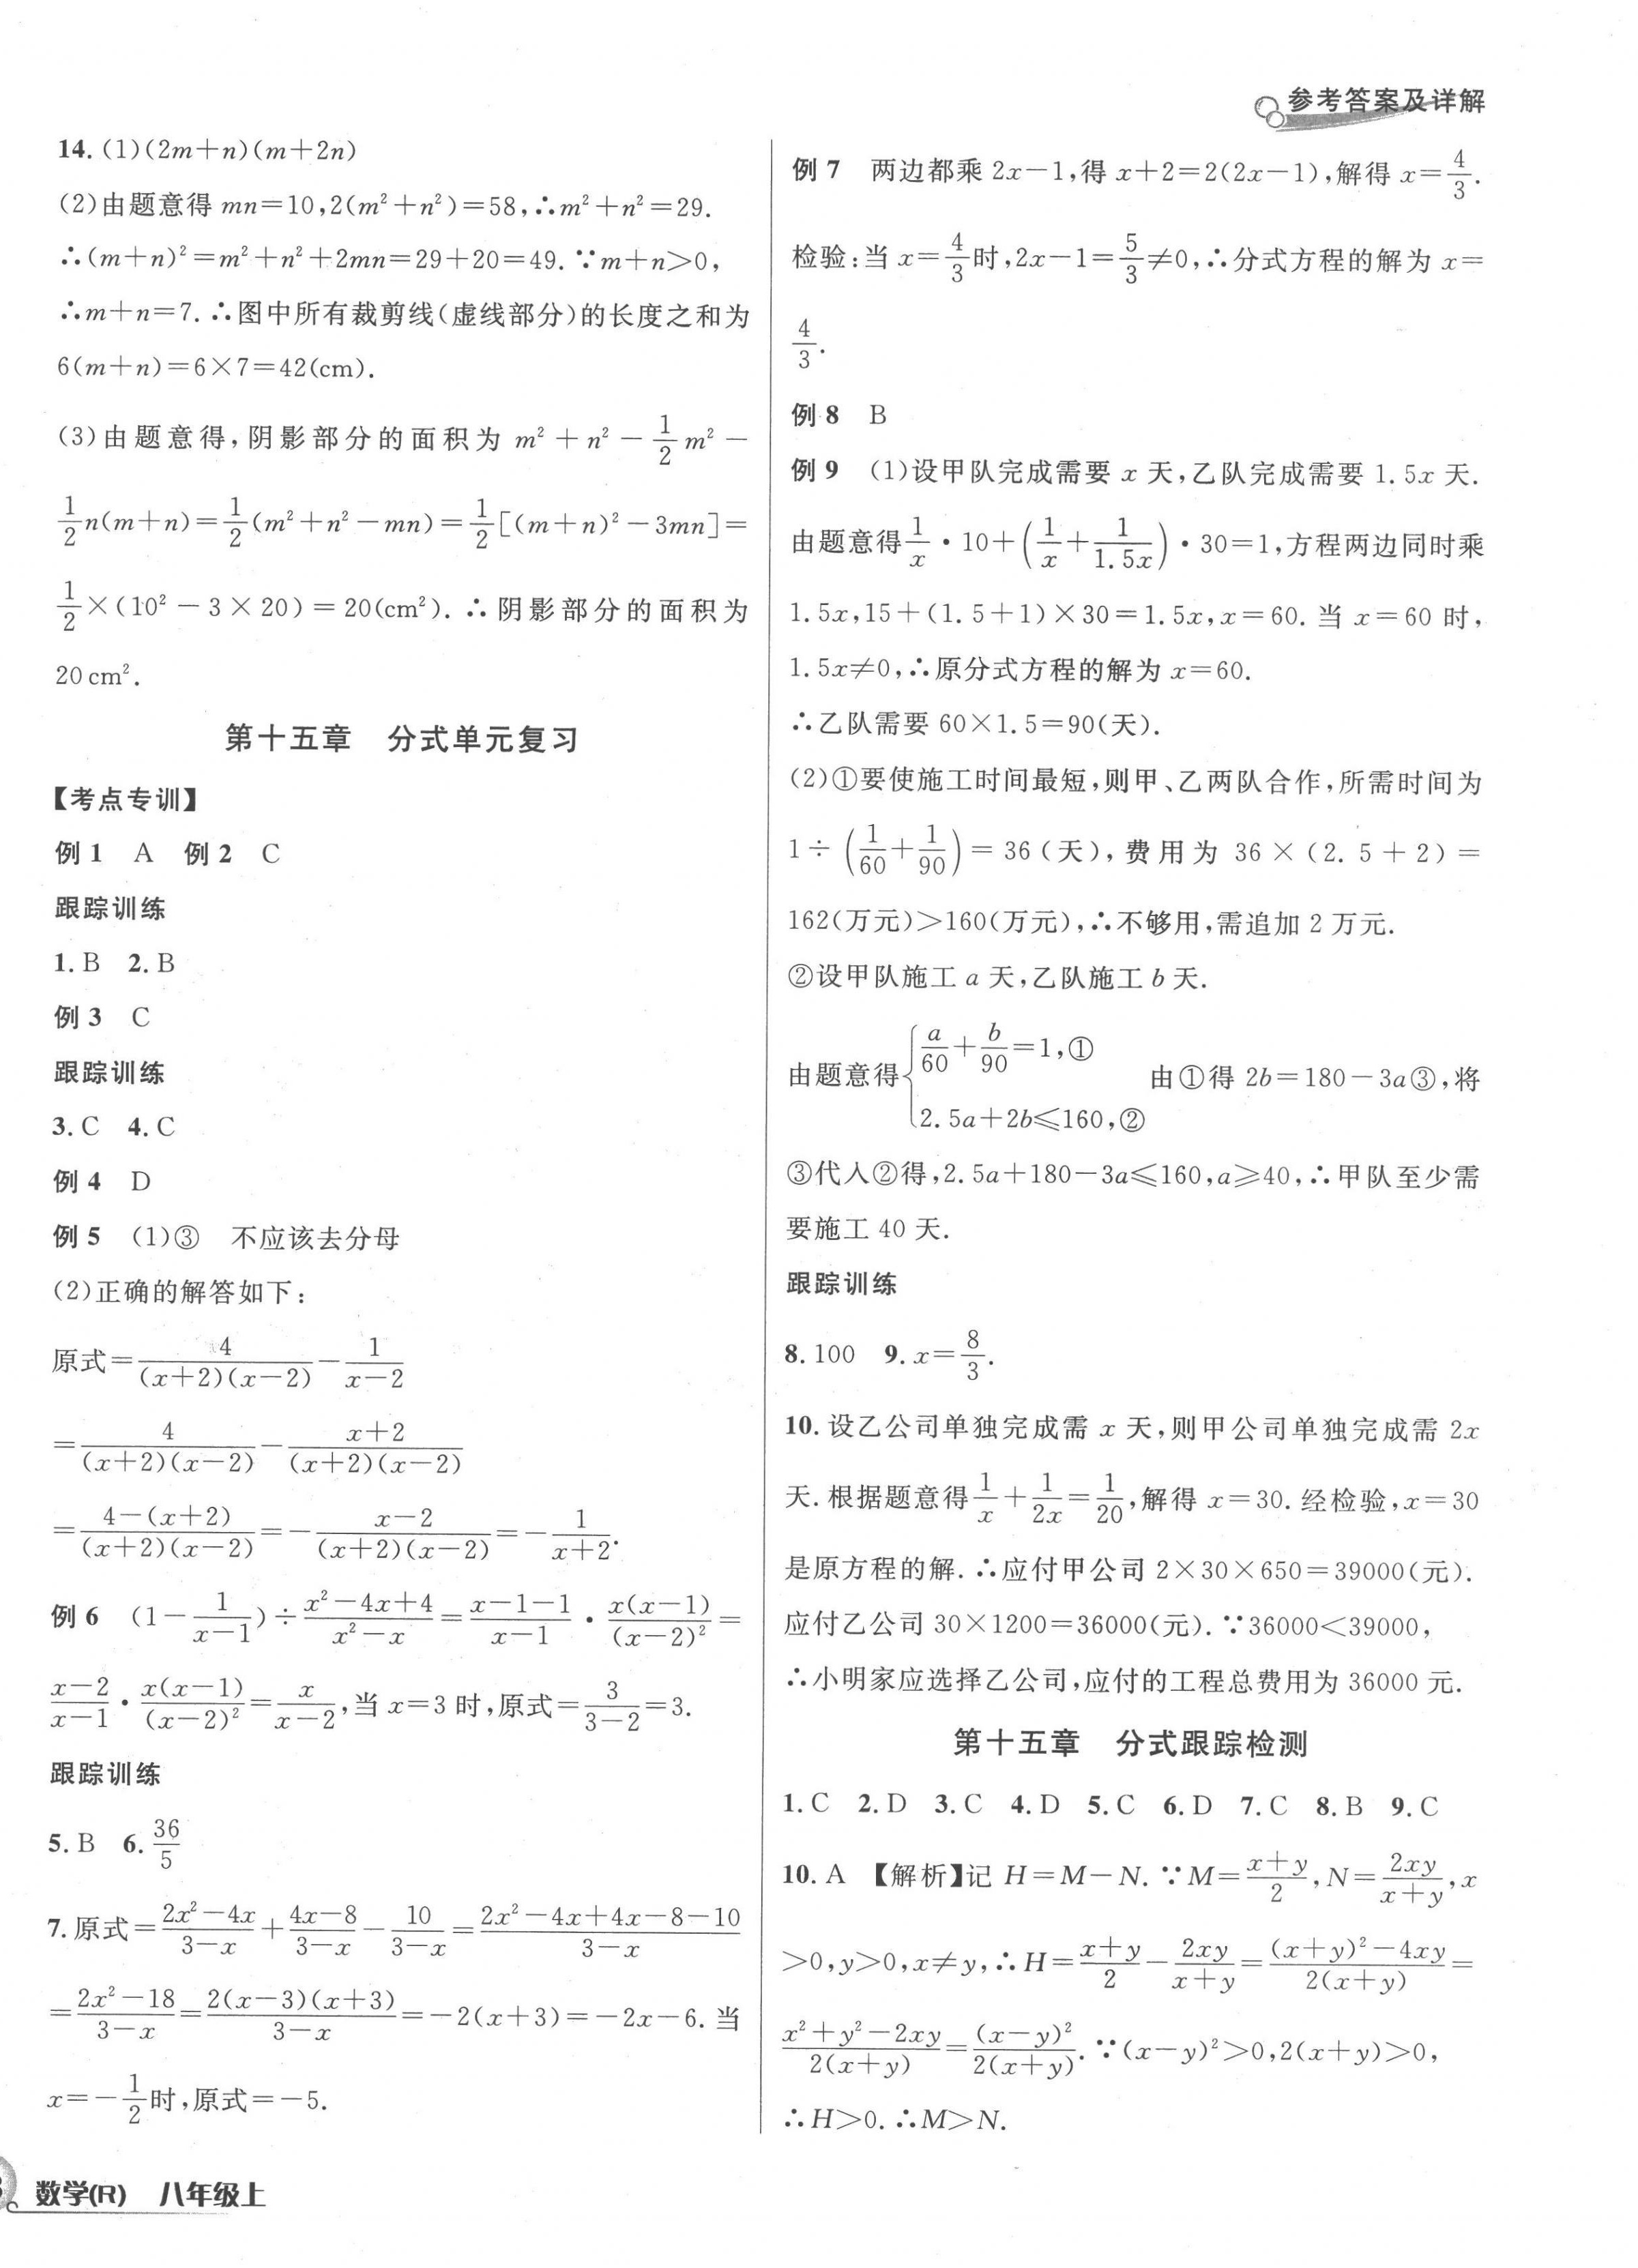 参考答案及详解
14. (1)(2m+n)(m+2n)
(2)由题意得 mn=10,2(m²+n²)=58,∴m²+n²=29.
∴(m+n)²=m²+n²+2mn=29+20=49. ∵m+n>0,
∴m+n=7. ∴图中所有裁剪线(虚线部分)的长度之和为
6(m+n)=6×7=42(cm).
(3)由题意得,阴影部分的面积为 m²+n²-1/2 m²-
1/2 n(m+n)=1/2(m²+n²-mn)=1/2[(m+n)²-3mn]=
1/2×(10²-3×20)=20(cm²). ∴阴影部分的面积为
20 cm².
第十五章 分式单元复习
【考点专训】
例1 A 例2 C
跟踪训练
1. B 2. B
例3 C
跟踪训练
3. C 4. C
例4 D
例5 (1)③ 不应该去分母
(2)正确的解答如下:
原式=4/((x+2)(x-2))-1/(x-2)
=4/((x+2)(x-2))-(x+2)/((x+2)(x-2))
=(4-(x+2))/((x+2)(x-2))=-(x-2)/((x+2)(x-2))=-1/(x+2).
例6 (1-1/(x-1))÷(x²-4x+4)/(x²-x)=(x-1-1)/(x-1)·x(x-1)/(x-2)²=
(x-2)/(x-1)·x(x-1)/(x-2)²=x/(x-2),当 x=3 时,原式=3/(3-2)=3.
跟踪训练
5. B 6. 36/5
7. 原式=(2x²-4x)/(3-x)+(4x-8)/(3-x)-10/(3-x)=(2x²-4x+4x-8-10)/(3-x)
=(2x²-18)/(3-x)=2(x-3)(x+3)/(3-x)=-2(x+3)=-2x-6. 当
x=-1/2时,原式=-5.
例7 两边都乘 2x-1,得 x+2=2(2x-1),解得 x=4/3.
检验:当 x=4/3时,2x-1=5/3≠0,∴分式方程的解为 x=
4/3.
例8 B
例9 (1)设甲队完成需要 x 天,乙队完成需要 1.5x 天.
由题意得1/x·10+(1/x+1/1.5x)·30=1,方程两边同时乘
1.5x,15+(1.5+1)×30=1.5x,x=60. 当 x=60 时,
1.5x≠0,∴原分式方程的解为 x=60.
∴乙队需要 60×1.5=90(天).
(2)①要使施工时间最短,则甲、乙两队合作,所需时间为
1÷(1/60+1/90)=36(天),费用为 36×(2.5+2)=
162(万元)>160(万元),∴不够用,需追加 2 万元.
②设甲队施工 a 天,乙队施工 b 天.
由题意得{a/60+b/90=1,① 2.5a+2b≤160,② 由①得 2b=180-3a③,将
③代入②得,2.5a+180-3a≤160,a≥40,∴甲队至少需
要施工 40 天.
跟踪训练
8. 100 9. x=8/3.
10. 设乙公司单独完成需 x 天,则甲公司单独完成需 2x
天. 根据题意得1/x+1/2x=1/20,解得 x=30. 经检验,x=30
是原方程的解. ∴应付甲公司 2×30×650=39000(元).
应付乙公司 30×1200=36000(元). ∵36000<39000,
∴小明家应选择乙公司,应付的工程总费用为 36000 元.
第十五章 分式跟踪检测
1. C 2. D 3. C 4. D 5. C 6. D 7. C 8. B 9. C
10. A 【解析】记 H=M-N. ∵M=(x+y)/2,N=2xy/(x+y),x
>0,y>0,x≠y,∴H=(x+y)/2-2xy/(x+y)=((x+y)²-4xy)/(2(x+y))=
(x²+y²-2xy)/(2(x+y))=(x-y)²/(2(x+y)). ∵(x-y)²>0,2(x+y)>0,
∴H>0. ∴M>N.
数学(R) 八年级上